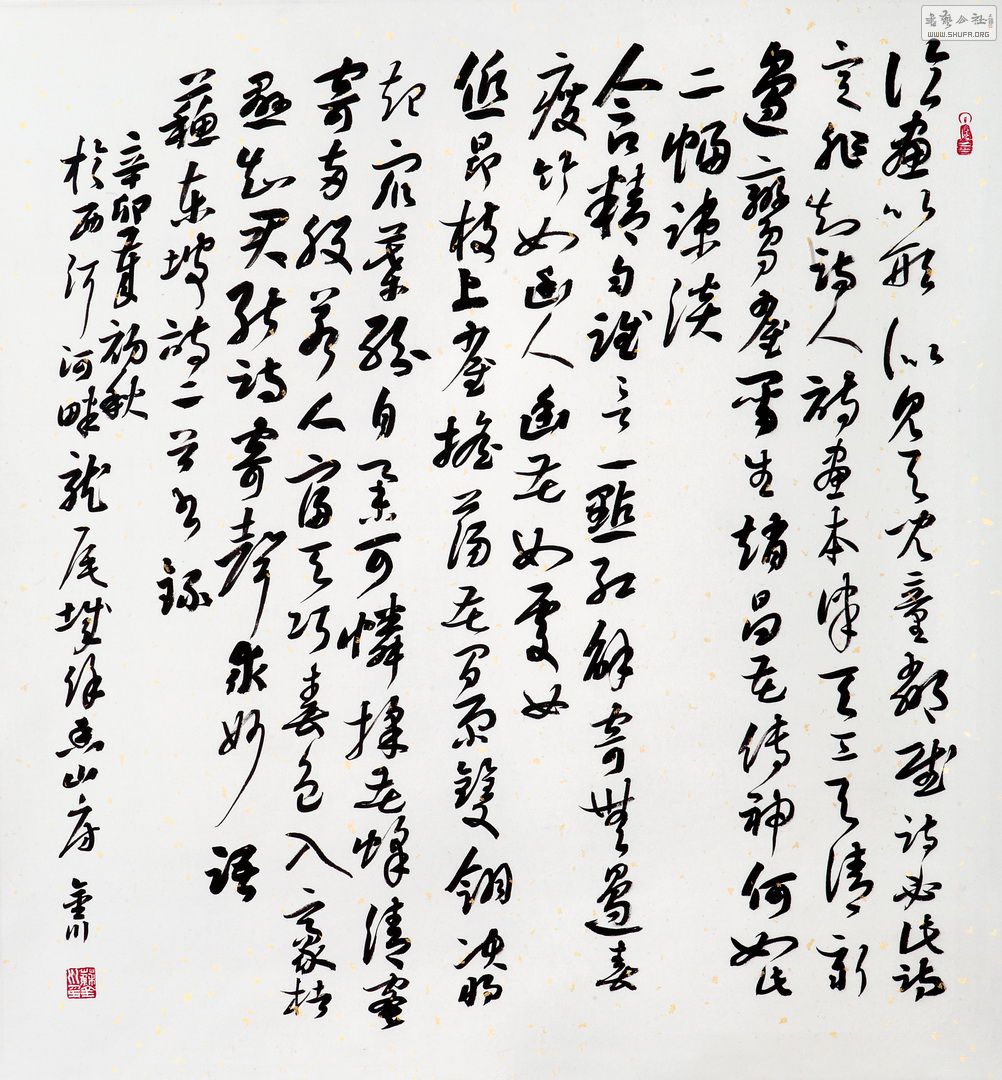 論畫以形似見與兒童鄰賦詩必此詩
定非知詩人詩畫本律天工与清新
邊鸞雀寫生趙昌花傳神何如此
二幅疎淡
含精勻誰言一點紅解寄無邊春
瘦竹如幽人幽花如處女
低昂枝上雀搖蕩花間雨雙翎決將
起眾葉紛自舉可憐採花蜂清蜜
寄兩股若人富天巧春色入毫楮
懸知君能詩寄聲求妙語
蘇東坡詩二首書錄
辛卯夏初秋
於西河河畔龍尾城山房 金川
書藝公社
WWW.SHUFA.ORG